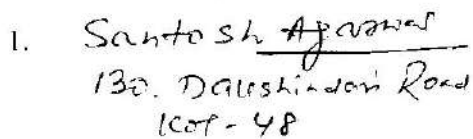 1. Santosh Agarwal
130. Dakshindari Road
Kol - 48